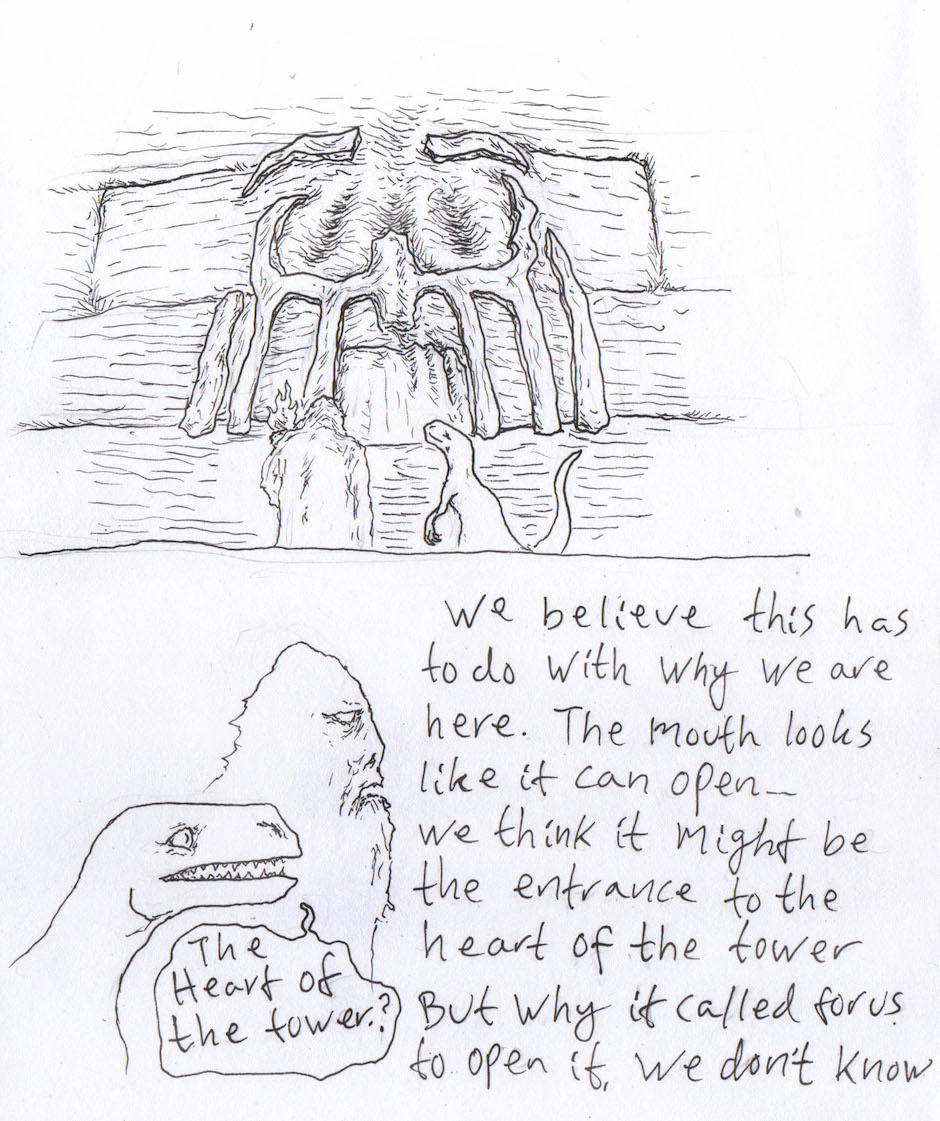 We believe this has
to do with why we are
here. The mouth looks
like it can open—
we think it might be
the entrance to the
heart of the tower
But why it called for us
to open it, we don't know
The
Heart of
the tower.?